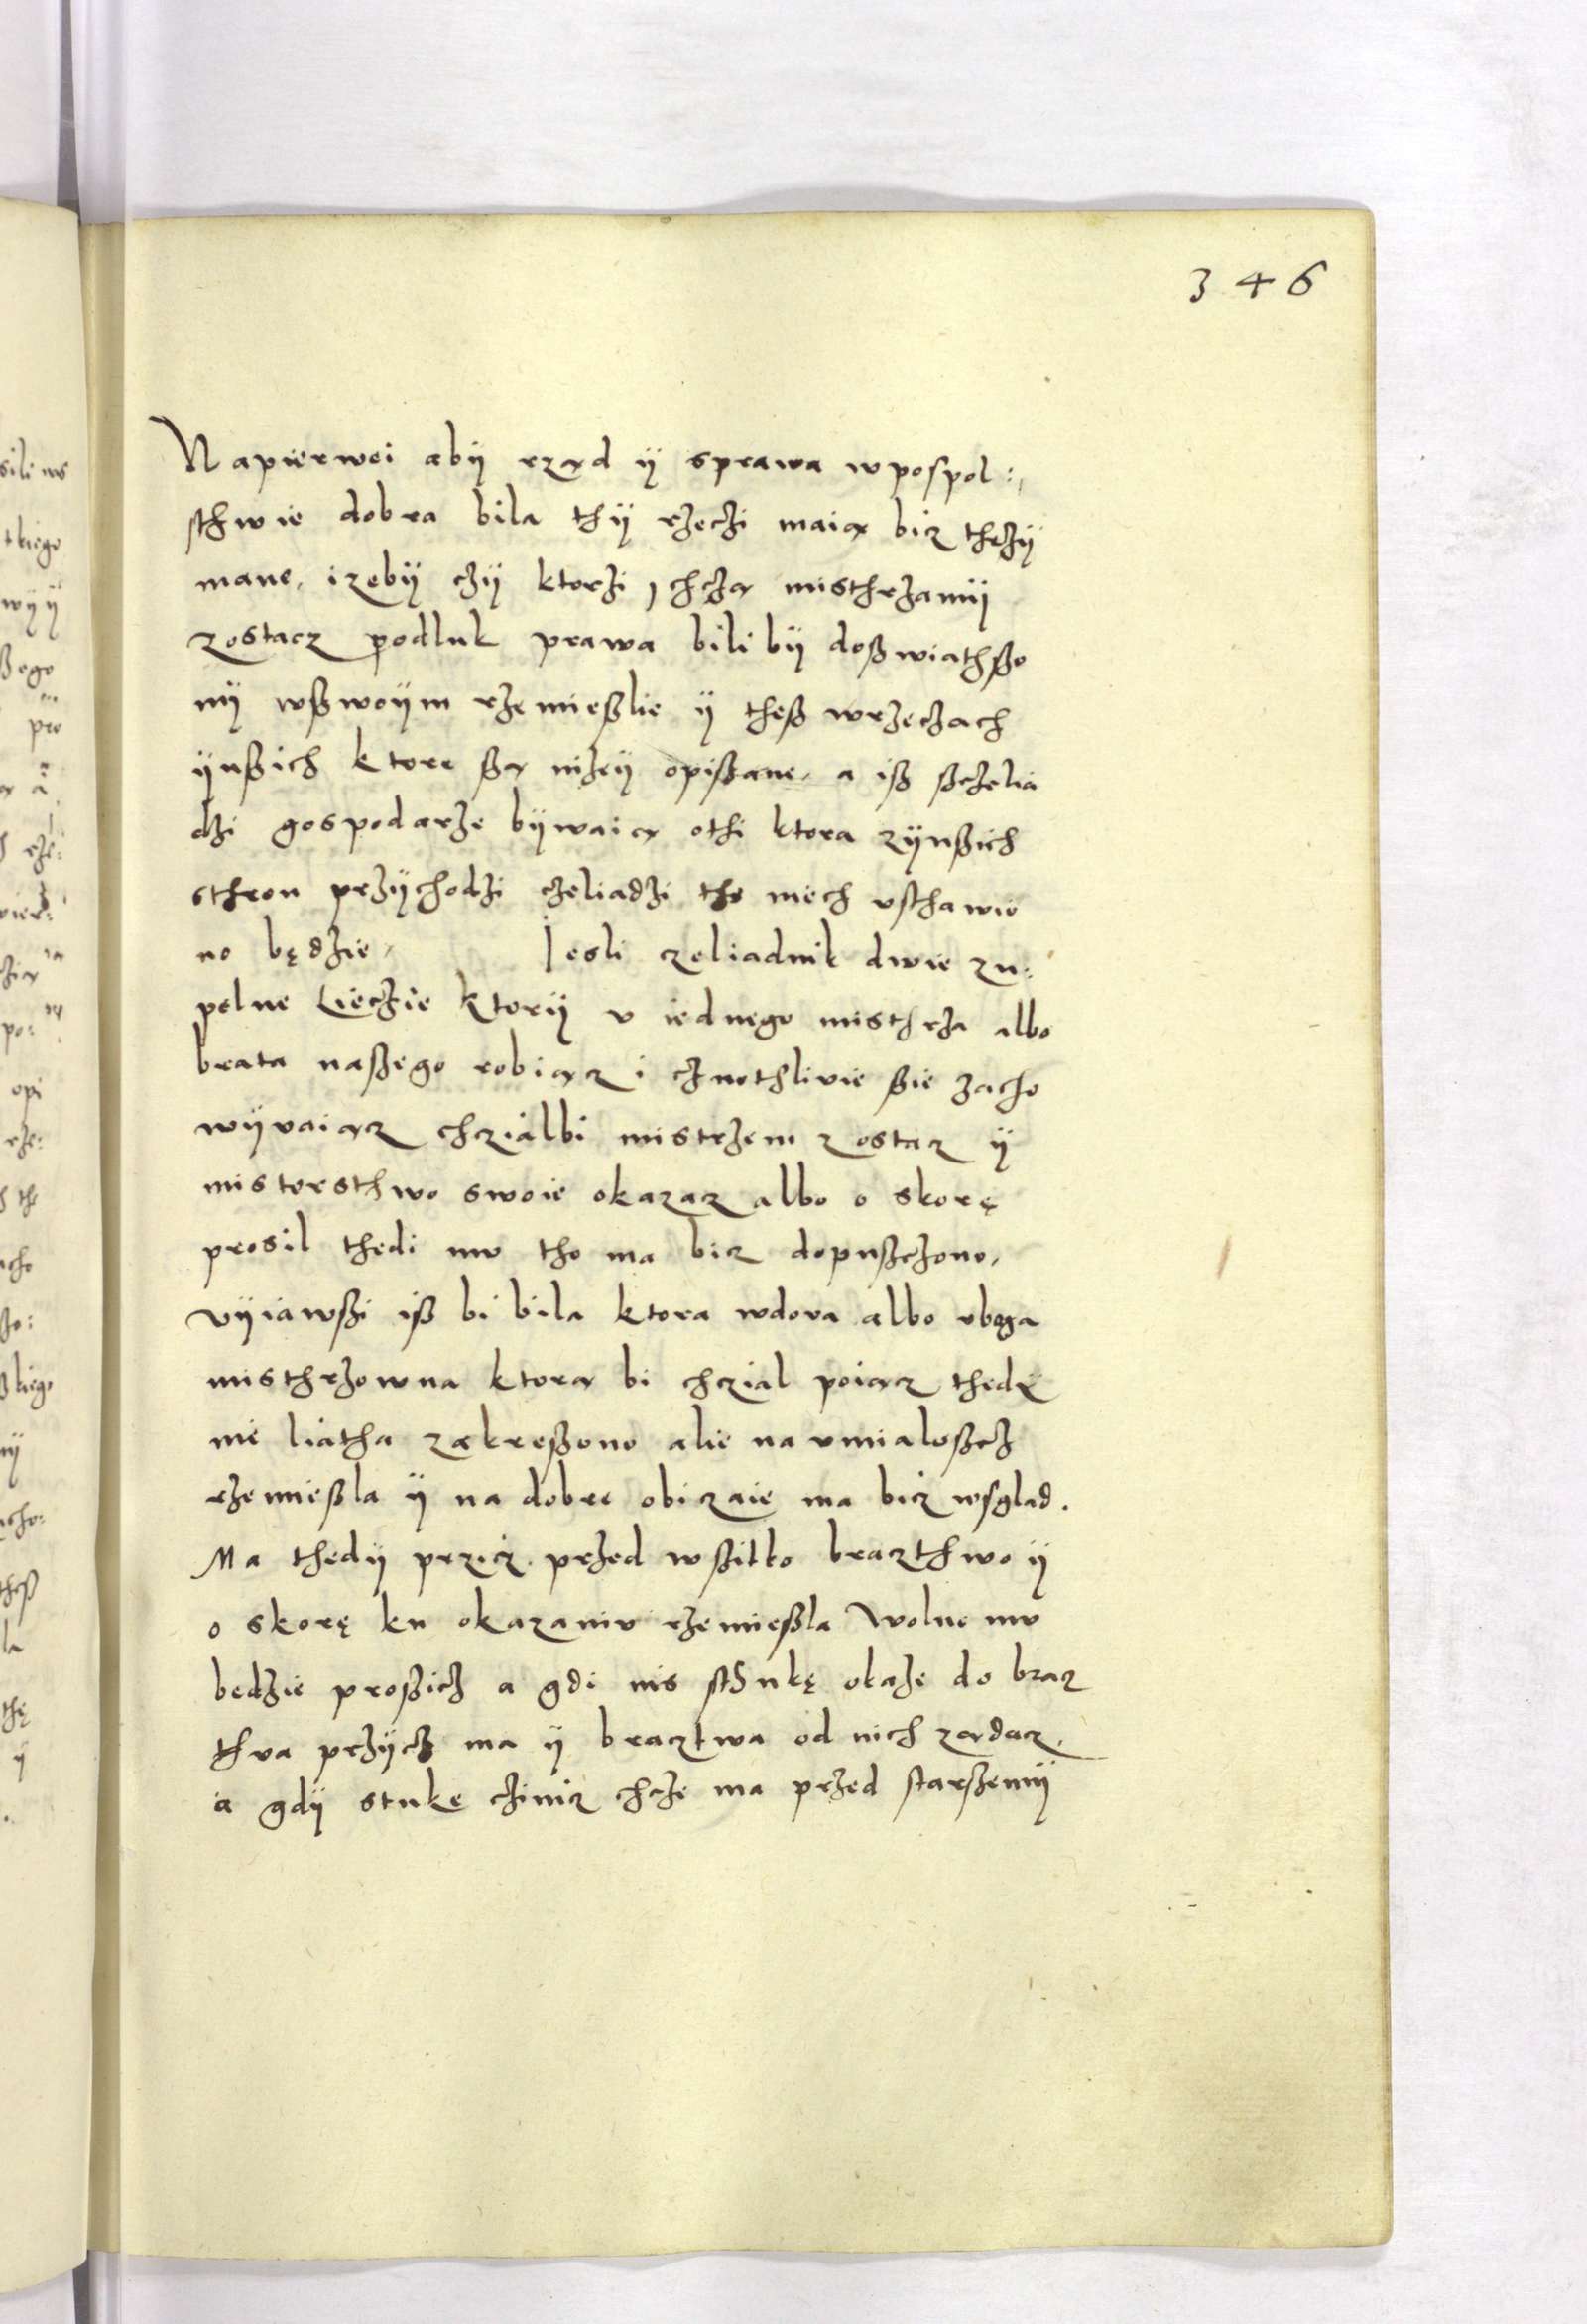 346
Napierwei abÿ rząd ÿ sprawa w pospol:,
sthwie dobra bila thÿ rzeczi maią bicz thrzÿ
mane, izebÿ czÿ ktorzi, chczą misthrzamÿ
zostacz podluk prawa bili bÿ doßwiathßo
nÿ wßwoÿm rzemießlie ÿ theß wrzeczach
ÿnßich ktore ßą nizeÿ opißane, a iß ßczelia
dzi gospodarze bÿwaią othi ktora zÿnßich
sthron przÿchodzi czeliadzi tho niech usthawio
no będzie, Jesli czeliadnik dwie zu:
pelne Liecżie ktorÿ v iednego misthrza albo
brata naßego robiącz i cznothlivie ßie zacho
wÿvaiącz chczialbi mistrzem zostacz ÿ
mistersthwo swoie okazacz albo o skorę
prosil thedi mv tho ma bicz dopußczono,
vÿiawßi iß bi bila ktora wdova albo vboga
misthrzowna ktorą bi chczial poiącz thedy
nie liatha zakreßono alie na vmialoßcz
rzemießla ÿ na dobre obiczaie ma bicz wsglad.
Ma thedÿ przicz przed wßitko bracztHwo ÿ
o skorę ku okazaniv rzemießla Wolno mv
bedzie proßicz a gdi nis sthukę okaże do bracz
thva przÿcz ma ÿ bracztwa od nich ządacz,
a gdÿ stuke czinicz chcze ma przed starßemÿ